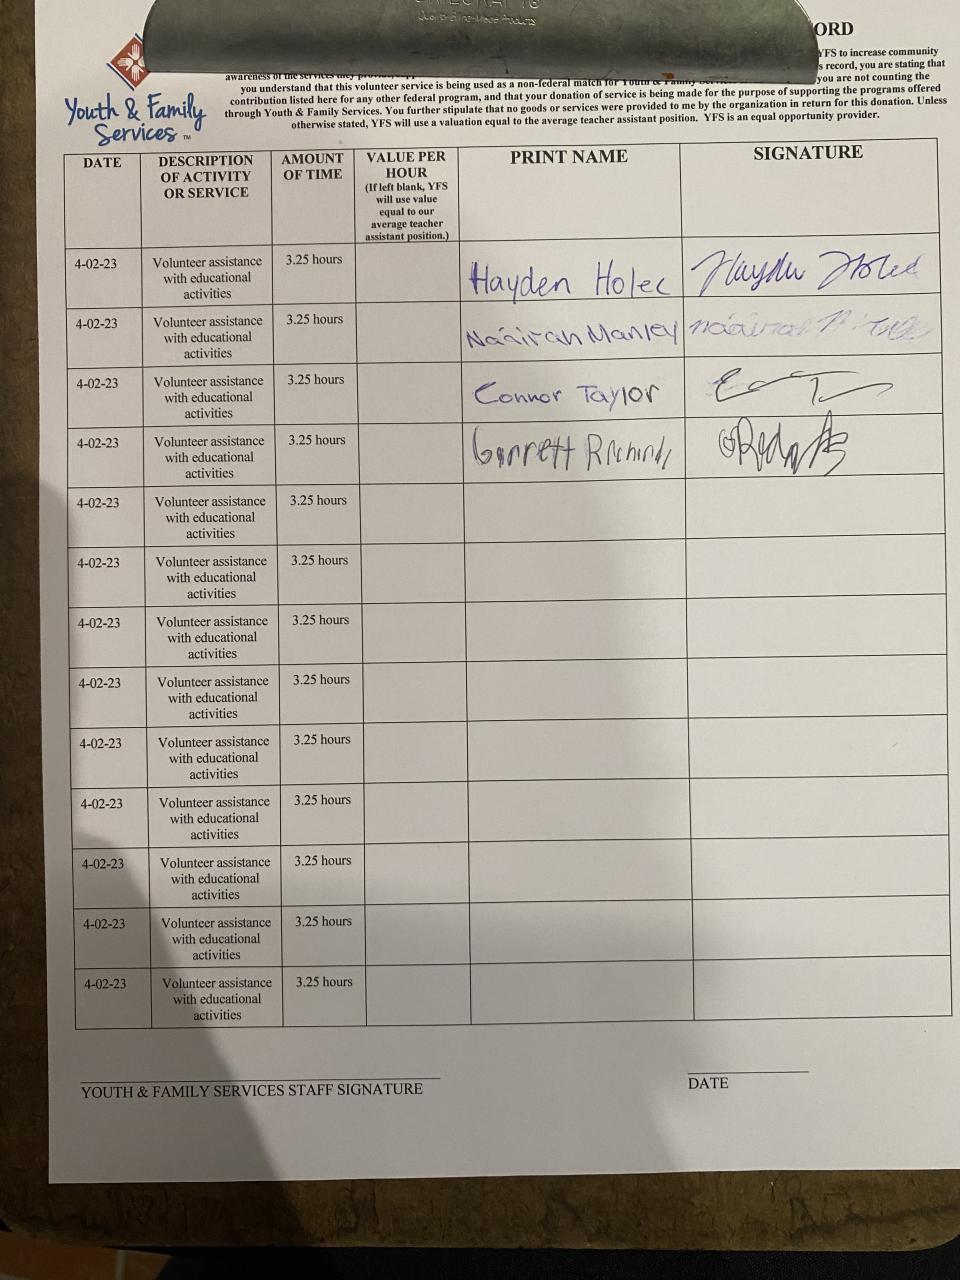 Quality Office-Made Products
ORD
YFS to increase community
s record, you are stating that
awareness of the services they
you understand that this volunteer service is being used as a non-federal match for Youth & Family you are not counting the
contribution listed here for any other federal program, and that your donation of service is being made for the purpose of supporting the programs offered
through Youth & Family Services. You further stipulate that no goods or services were provided to me by the organization in return for this donation. Unless
otherwise stated, YFS will use a valuation equal to the average teacher assistant position. YFS is an equal opportunity provider.
Youth & Family
Services™
DATE
DESCRIPTION
OF ACTIVITY
OR SERVICE
AMOUNT
OF TIME
VALUE PER
HOUR
(If left blank, YFS
will use value
equal to our
average teacher
assistant position.)
PRINT NAME
SIGNATURE
4-02-23
Volunteer assistance
with educational
activities
3.25 hours
Hayden Holec
Hayden Holec
4-02-23
Volunteer assistance
with educational
activities
3.25 hours
Náairah Manley
4-02-23
Volunteer assistance
with educational
activities
3.25 hours
Connor Taylor
4-02-23
Volunteer assistance
with educational
activities
3.25 hours
Garrett
4-02-23
Volunteer assistance
with educational
activities
3.25 hours
4-02-23
Volunteer assistance
with educational
activities
3.25 hours
4-02-23
Volunteer assistance
with educational
activities
3.25 hours
4-02-23
Volunteer assistance
with educational
activities
3.25 hours
4-02-23
Volunteer assistance
with educational
activities
3.25 hours
4-02-23
Volunteer assistance
with educational
activities
3.25 hours
4-02-23
Volunteer assistance
with educational
activities
3.25 hours
4-02-23
Volunteer assistance
with educational
activities
3.25 hours
4-02-23
Volunteer assistance
with educational
activities
3.25 hours
YOUTH & FAMILY SERVICES STAFF SIGNATURE
DATE